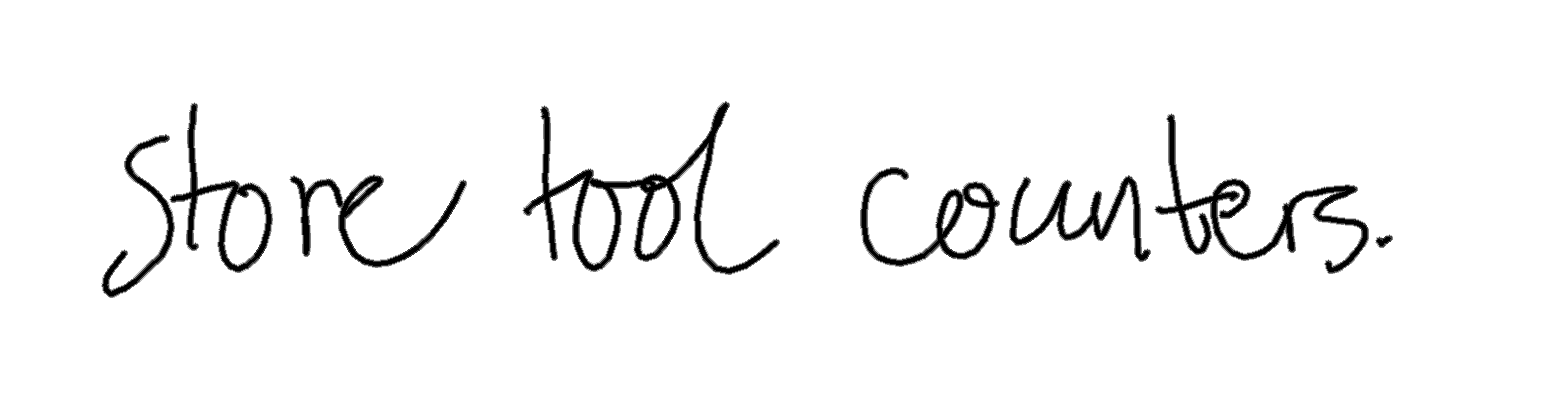 store tool counters.